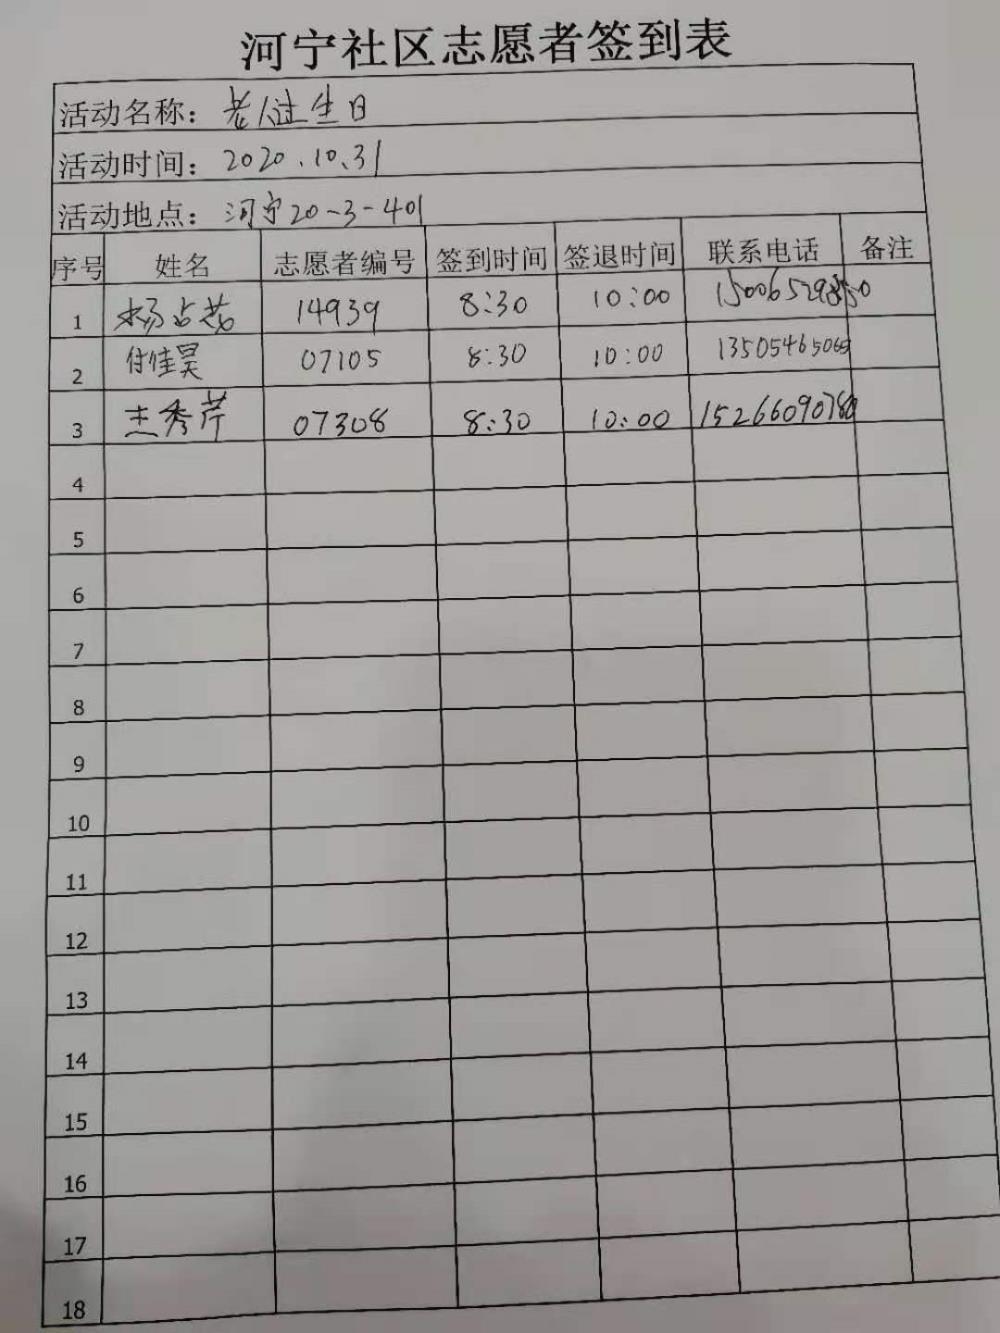 河宁社区志愿者签到表
活动名称：老人过生日
活动时间：2020.10.31
活动地点：河宁20-3-401
序号 姓名 志愿者编号 签到时间 签退时间 联系电话 备注
1 杨占花 14939 8:30 10:00
2 付佳昊 07105 8:30 10:00 13505465065
3 秀芹 07308 8:30 10:00 15266090780
4
5
6
7
8
9
10
11
12
13
14
15
16
17
18